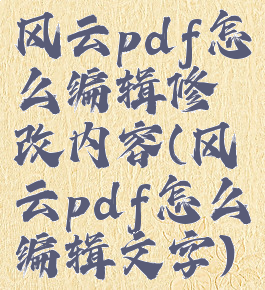 风云pdf怎
么编辑修
改内容(风
云pdf怎么
编辑文字)